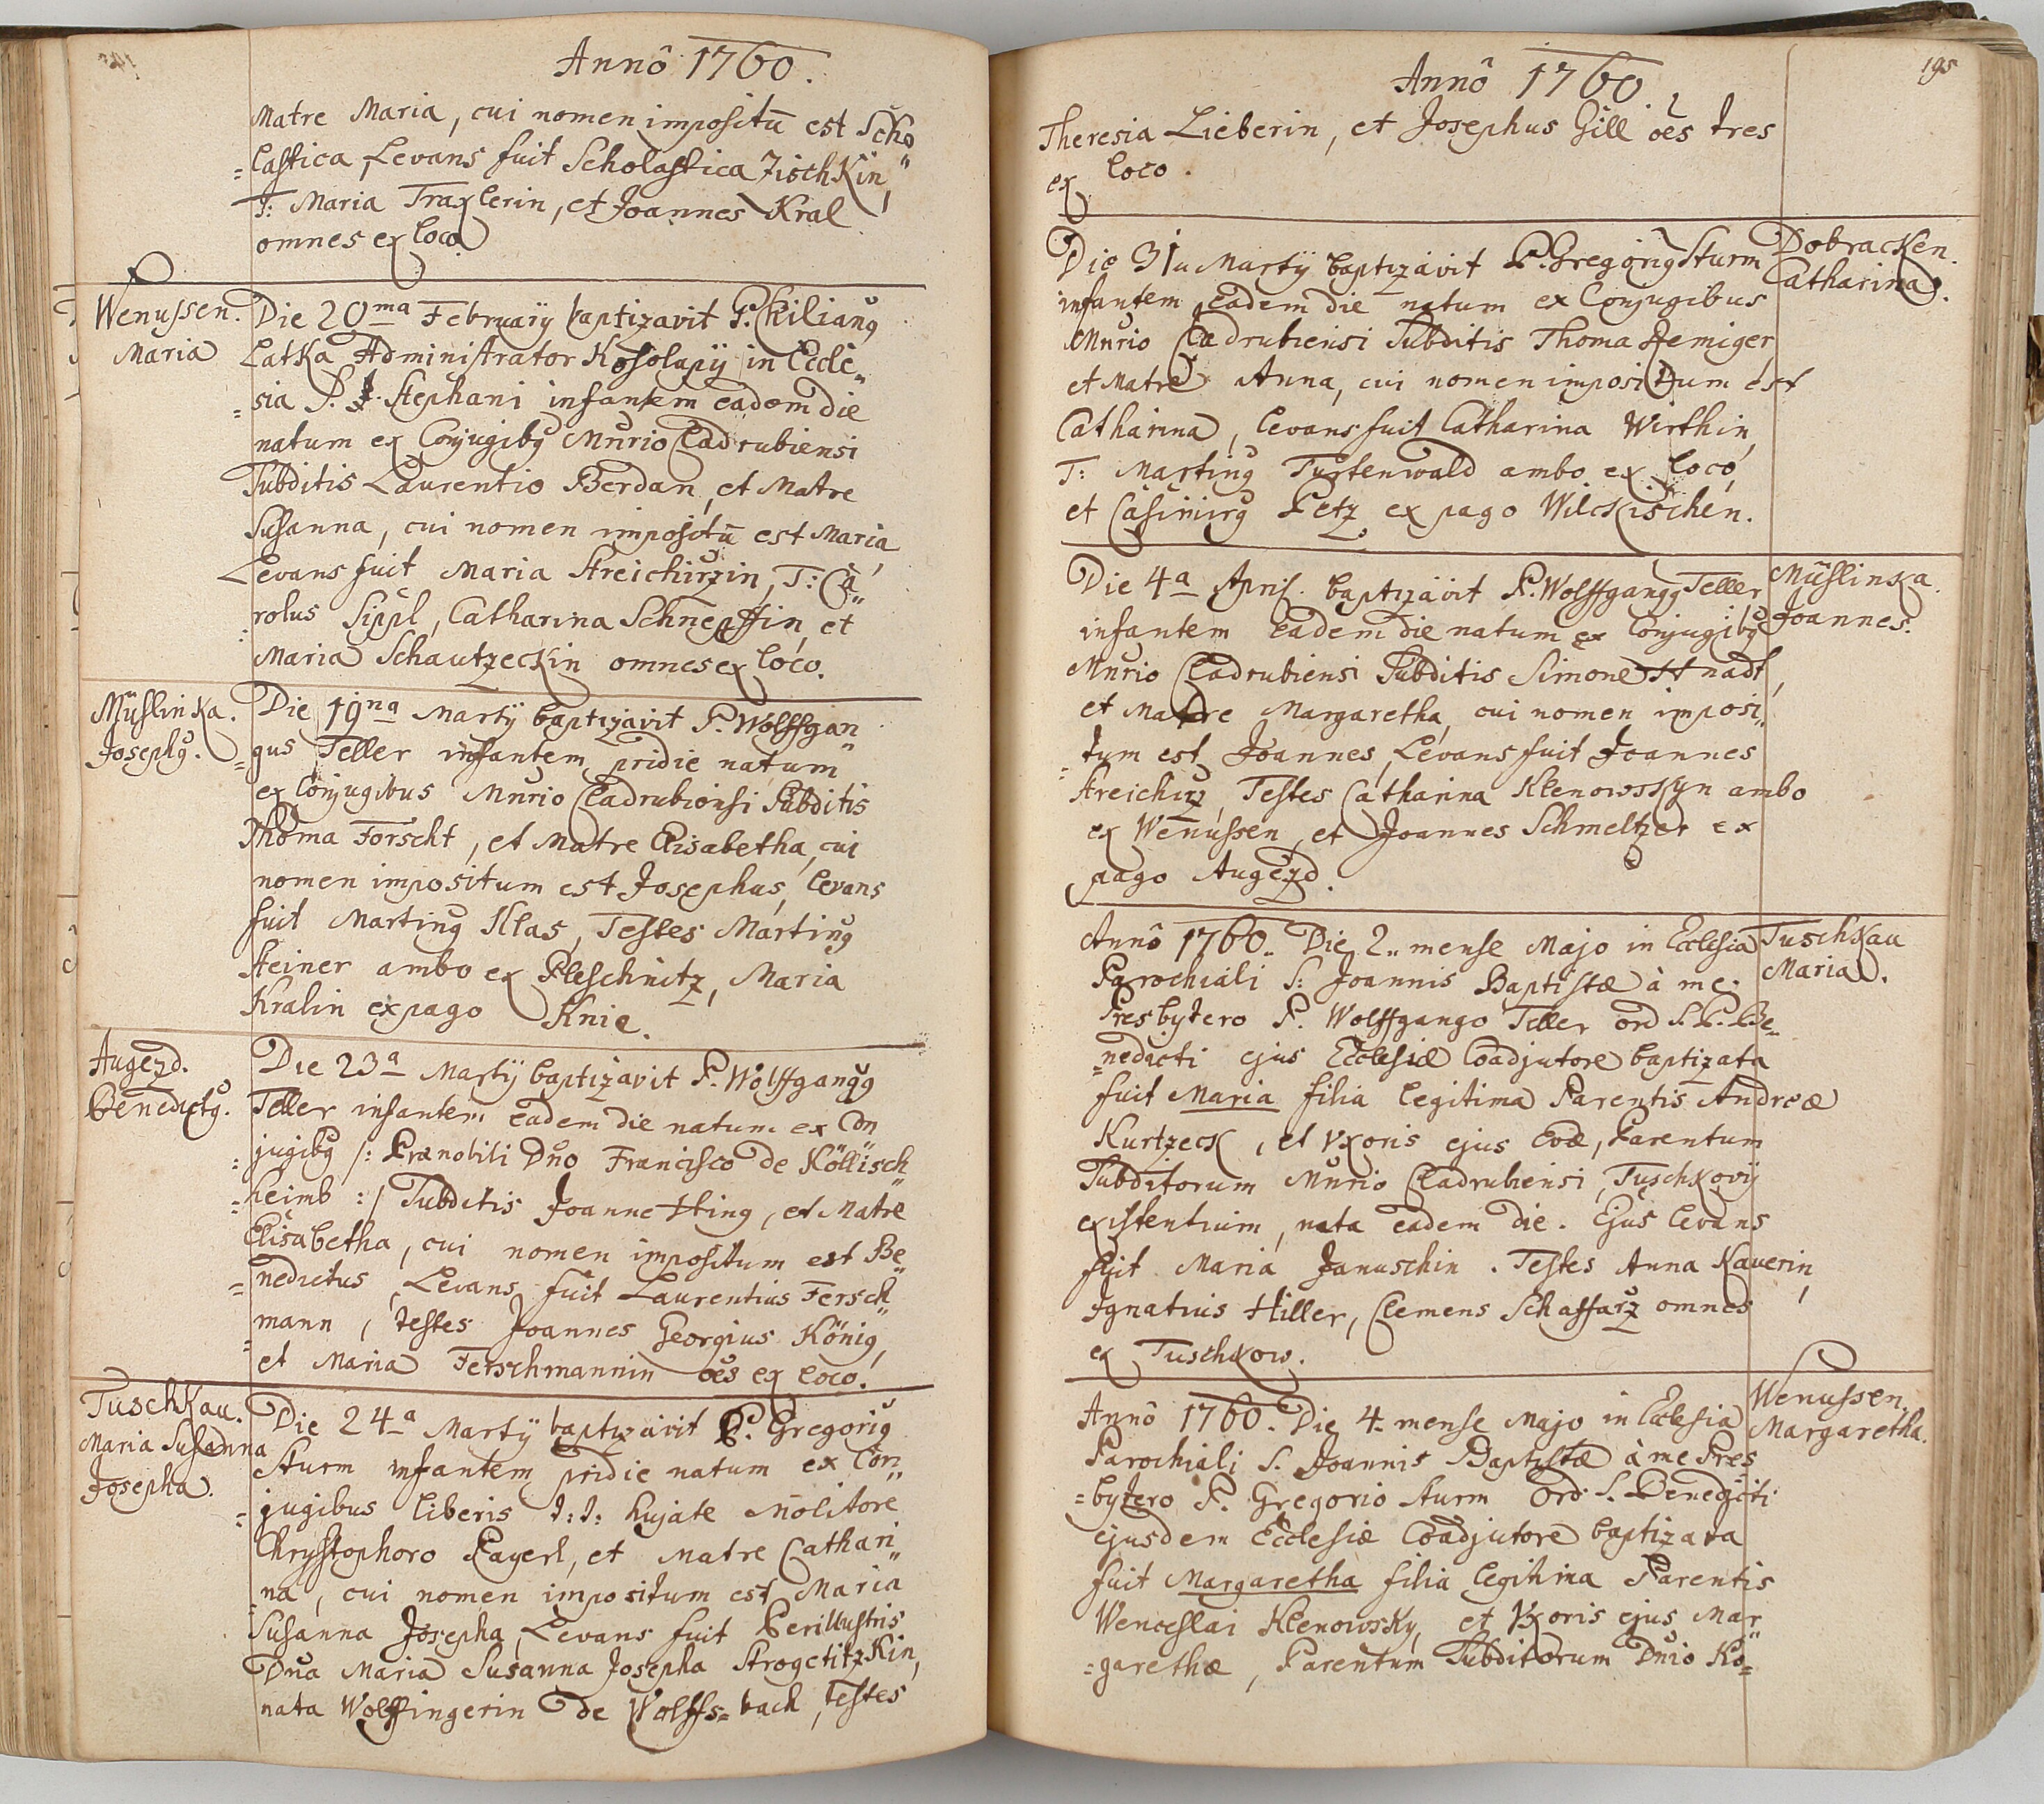 Annô 1760.
Matre Maria, cui nomen impositū est Scho„
=lastica, Levans fuit Scholastica JischKin,
T: Maria Traxlerin, et Joannes Kral
omnes ex loco
Wenussen.
Maria
Die 20ma February baptizavit P. Chiliang
LatKa Administrator Kosolapÿ in Eccle„
=sia P. Stephani infantem eadem die
natum ex Conjugibg Mnrio Cladrubiensi
Subditis Laurentio Berdan, et Matre
Susanna, cui nomen impositū est Maria,
Levans fuit Maria Streichirzin, T: Ca„
rolus Sippl, Catharina Schnepffin, et
Maria SchautzecKin omnes ex loco.
MüslinKa.
Josephg.
Die 19na Martÿ baptizavit P. Wolffgan„
=gus Teller infantem pridie natum
ex Conjugibus Mnrio Cladrubiensi Subditis
Thoma Forscht, et Matre Elisabetha, cui
nomen impositum est Josephus, levans
fuit Marting Klas, Testes Marting
Steiner ambo ex Pleschnitz, Maria
Kralin ex pago Knie.
Augezd.
Benedictg.
Die 23a Martÿ baptizavit P. Wolffgangg
Teller infantem eadem die natum ex Con
=jugibg /: Prænobili Dno Francisco de Köllisch„
=heimb :/ Subditis Joanne Hing, et Matre
Elisabetha, cui nomen impositum est Be„
=nedictus, Levans fuit Laurentius Fersch„
=mann, testes Joannes Georgius König,
et Maria Ferschmannin oēs ex loco.
TuschKau.
Maria Susanna
Josepha.
Die 24a Martÿ baptizavit P. Gregorig
Sturm infantem pridie natum ex Con„
=jugibus liberis T: T: hujate Molitore
Chrystophoro Payerl, et Matre Cathari„
=na, cui nomen impositum est Maria
Susanna Josepha, Levans fuit Perillustris
Dna Maria Susanna Josepha StrogetitzKin,
nata Wolffingerin de Wolffs=bach, testes
Annô 1760.
195
Theresia Lieberin, et Josephus Gill oēs tres
ex loco.
Dobracken.
Catharina.
Die 31„ Martÿ baptizavit P. Gregorig Sturm
infantem eadem die natum ex Conjugibus
Mnrio Cladrubiensi Subditis Thoma Hemiger,
et Matre Anna, cui nomen impositum est
Catharina, levans fuit Catharina Wirthin,
T: Marting Türtenwald ambo ex loco,
et Casimirg Petz ex pago Wilckischen.
Müslinka.
Joannes.
Die 4a Apris. baptizavit P. Wolffgangg Teller
infantem eadem die natum ex Conjugibg
Mnrio Cladrubiensi Subditis Simone Hnadt,
et Matre Margaretha, cui nomen imposi„
=tum est Joannes, Levans fuit Joannes
Streichirz, Testes Catharina Klenowskyn ambo
ex Wenussen, et Joannes Schmeltzer ex
pago Augezd.
Tuschkau
Maria.
Annô 1760„ Die 2„ mense Majo in Ecclesia
Parochiali S: Joannis Baptistæ à me
Presbytero P. Wolffgango Teller ord S. P. Be„
=nedicti ejus Ecclesiæ Coadjutore baptizata
fuit Maria filia legitima Parentis Andreæ
Kurtzeck, et Vxoris ejus Evæ, Parentum
Subditorum Mnrio Cladrubiensi, Tuschkovÿ
existentium, nata eadem die. Ejus levans
fuit Maria Januschin. Testes Anna Kauerin,
Ignatius Hiller, Clemens Schaffarz omnes
ex Tuschkow.
Wenussen.
Margaretha.
Annô 1760. Die 4. mense Majo in Ecclesia
Parochiali S. Joannis Baptistæ à me Pres„
=bytero P. Gregorio Sturm Ord. S. Benedicti
ejusdem Ecclesiæ Coadjutore baptizata
fuit Margaretha filia legitima Parentis
Wenceslai Klenowsky, et Vxoris ejus Mar„
=garethæ, Parentum Subditorum Dnio Ko=